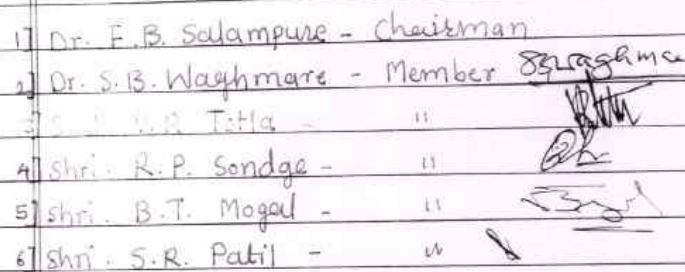 1] Dr. F.B. Salampure - Chairman
2] Dr. S.B. Waghmare - Member SBWaghmare
Totla - "
4] Shri. R.P. Sondge - "
5] Shri. B.T. Mogal - "
6] Shri. S.R. Patil - "